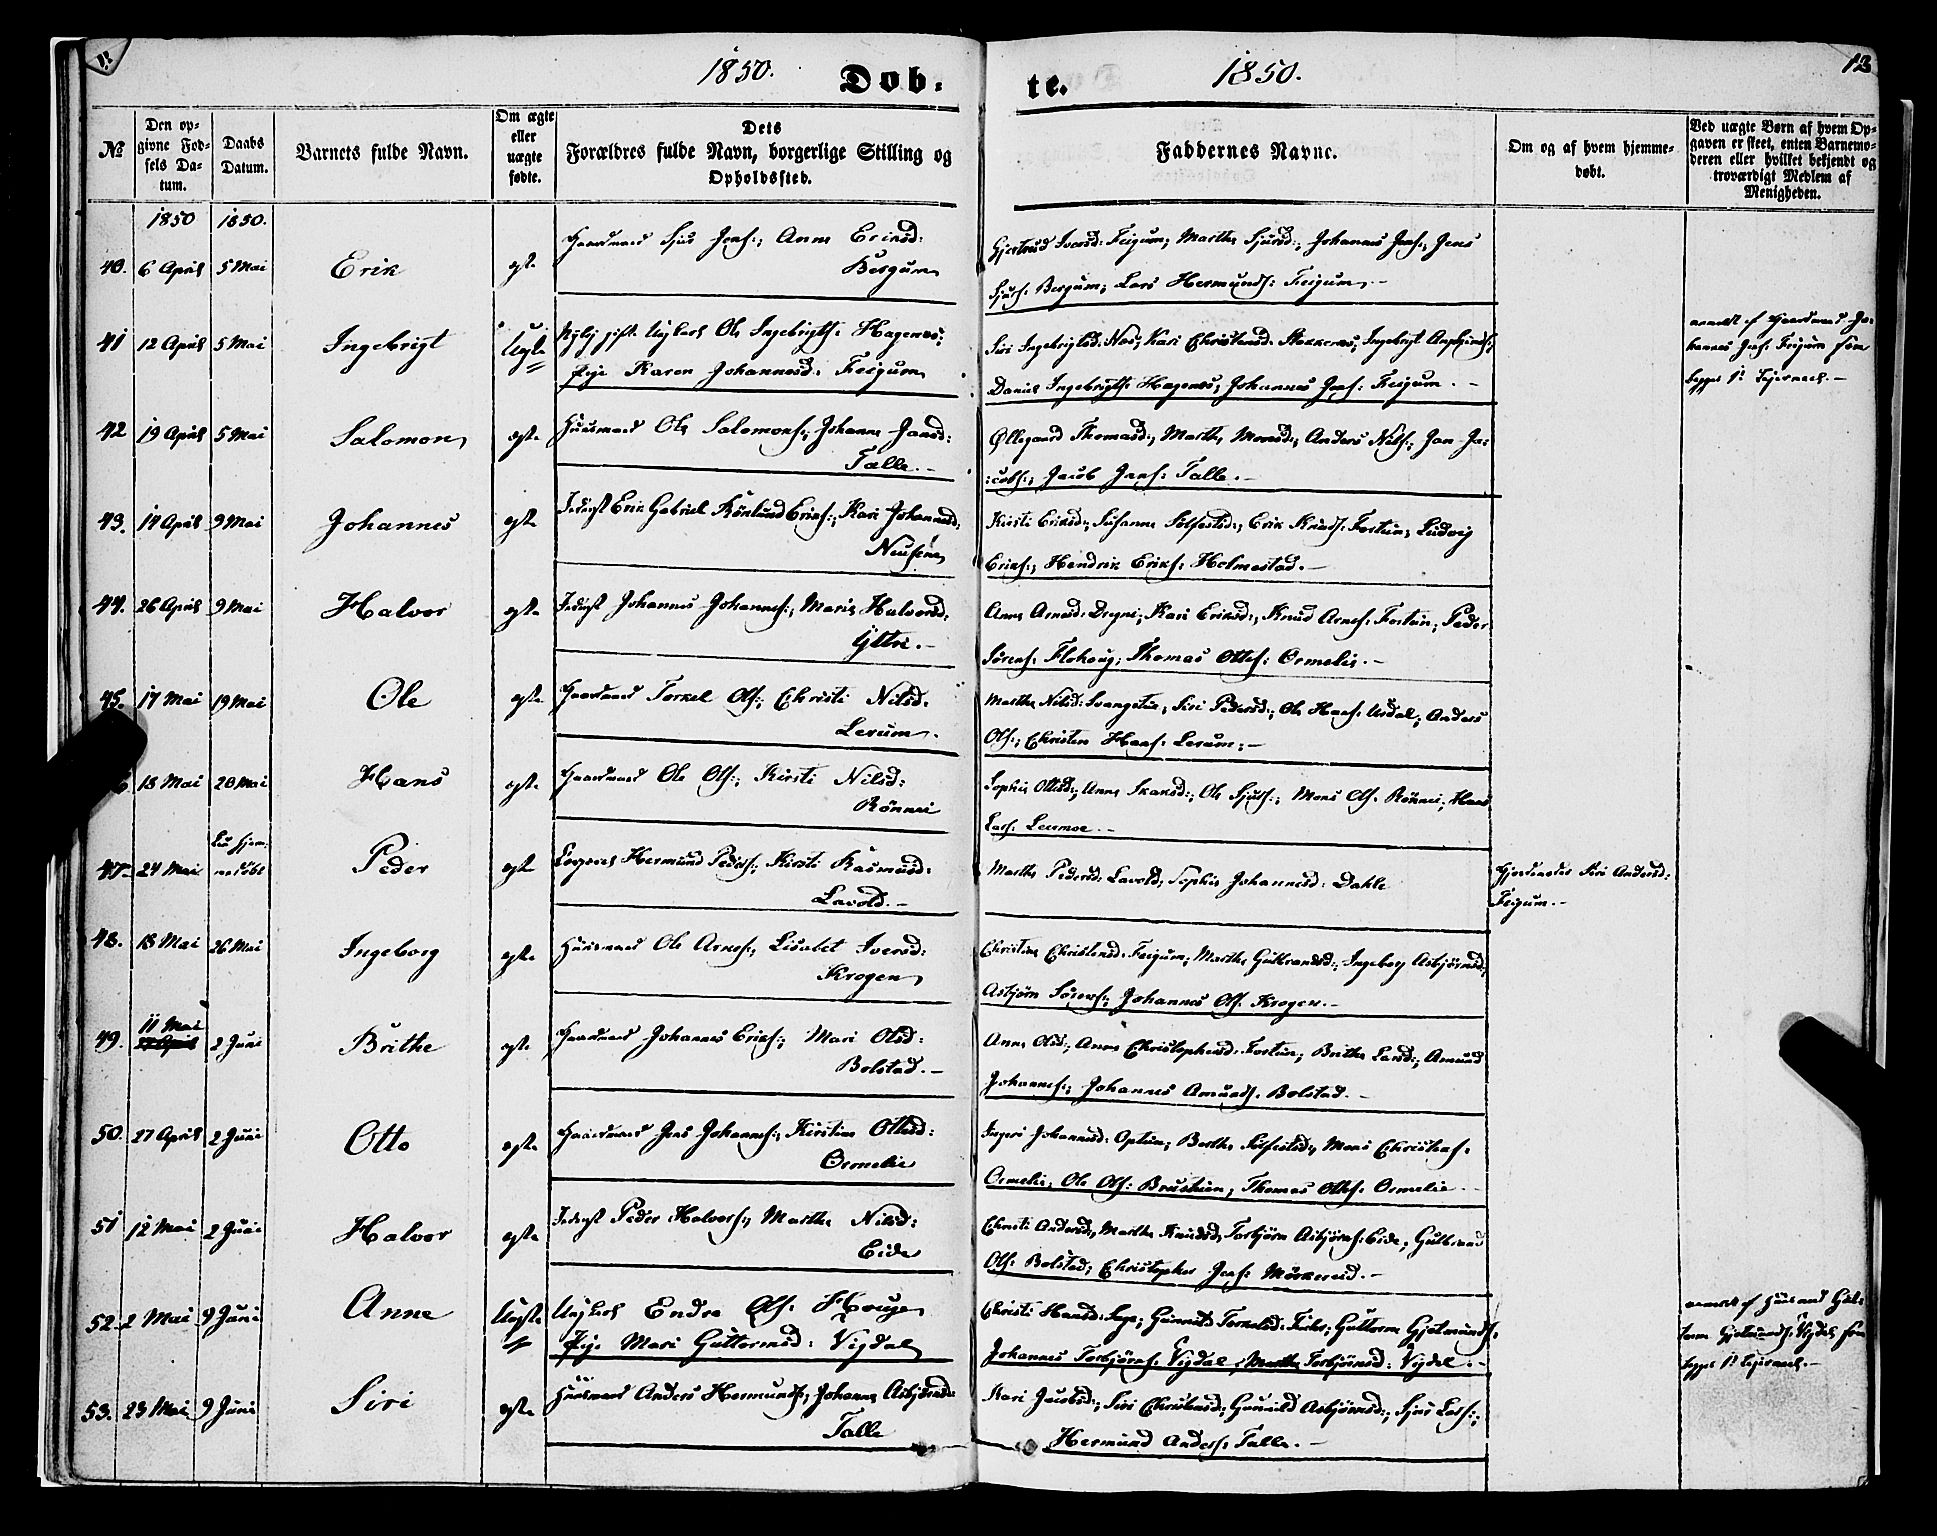 1850. Døb- te. 1850. 13
№ Den opgivne Fødsels Datum. Daabs Datum. Barnets fulde Navn. Om ægte eller uægte fødte. Dets Forældres fulde Navn, borgerlige Stilling og Opholdssted. Faddernes Navne. Om og af hvem hjemmedøbt. Ved uægte Børn af hvem Opgaven er skeet, enten Barnemoderen eller hvilket bekjendt og troværdigt Medlem af Menigheden.
1850 1850.
40. 6 April 5 Mai Erik egte Gaardmand Sjur Jens:, Anne Eriksd:
Bergum
Gjertrud Iversd: Feigum, Marthe Sjursd:, Johannes Jens:, Jens
Sjurs: Bergum, Lars Hermunds: Feigum.-
41 12 April 5 Mai Ingebrigt Uegte Ungkarl Ole Ingebrigts: Hagenæs,
Pige Karen Johannesd: Feigum
Siri Ingebrigtsd: Næs, Kari Christensd:
Daniel Ingebrigts: Hagenæs, Johannes Jens: Feigum.-
anmeldt af Gaardmand Jo-
hannes Jens: Feigum som
begges 1ste Leiermaal.-
42 19 April 5 Mai Salomon egte Huusmand Ole Salomons:, Johanne Jansd:
Talle.-
Øllegaard Thomasd:, Marthe Monsd:, Anders Nils:, Jan Ja-
cobs:, Jacob Jans: Talle.-
43. 14 April 9 Mai Johannes egte Inderst Erik Gabriel Rönlund Eriks:, Kari Johannesd:
Kirsti Eriksd:, Susanne Solfestsd:, Erik Knuds: Fortun, Ludvig
Eriks:, Hendrik Eriks: Holmestad.-
44. 26 April 9 Mai Halvor egte Inderst Johannes Johannes:, Marie Halvorsd:
Yttri.-
Anne Arnesd: Kari Eriksd:, Knud Arnes: Fortun, Peder
Sörens: Flohoug, Thomas Ottes: Ormelie.-
45. 17 Mai 19 Mai Ole egte Gaardmand Torkel Ols:, Christi Nilsd:
Lerum.
Marthe Nilsd: Svangstun, Siri Pedersd:, Ole Hans: Urdal, Anders
Ols:, Christen Hans: Lerum.-
18 Mai 20 Mai Hans egte Gaardmand Ole Ols:, Kirsti Nilsd:
Rönnei
Sophie Ottesd:, Anne Ole Sjurs:, Mons Ols: Rönnei, Hans
Lars: Lermoe.-
47. 24 Mai hjem-
medöbt Peder egte Hermund Peders:, Kirsti Rasmusd:
Lavold.-
Marthe Pedersd: Lavold, Sophie Johannesd: Dahle
Siri Andersd:
Feigum.-
48. 18 Mai 26 Mai Ingeborg egte Huusmand Ole Arnes:, Lisabet Iversd:
Krogen
Christine Christensd: Feigum, Marthe Gulbrandsd:, Ingeborg Asbjörnsd:,
Asbjörn Sörens:, Johannes Ols: Krogen.-
49. 11 Mai 2 Juni Brithe egte Gaardmand Johannes Eriks:, Mari Olsd:
Bolstad.-
Anne Olsd:, Anne Christophersd: Fortun, Brithe Larsd:, Amund
Johannes:, Johannes Amunds: Bolstad.-
50. 27 April 2 Juni Otto egte Gaardmand Jens Johannes:, Kirstine Ottesd:
Ormelie
Ingeri Johannesd: Optun, Berthe Solfestsd:, Mons Christens:
Ormelie, Ole Ols: Thomas Ottes: Ormelie.-
51 12 Mai 2 Juni Halvor egte Inderst Peder Halvors:, Marthe Nilsd:
Eide
Christi Andersd:, Marthe Knudsd:, Torbjörn Asbjörns: Eide, Gulbrand
Ols: Bolstad, Christopher Jens: Mörkereid.-
52. 2 Mai 9 Juni Anne Uegte Ungkarl Endre Ols: Houge
Pige Mari Guttormsd: Vigdal
Christi Hansd: Guttorm Gjelmunds:
Johannes Torbjörns: Vigdal, Marthe Torbjörnsd: Vigdal.-
anmeldt af Huusmand Gut-
torm Gjelmunds: Vigdal som
begges 1ste Leiermaal.-
53. 23 Mai 9 Juni Siri egte Huusmand Anders Hermunds:, Johanne Asbjörnsd:
Talle
Kari Jacobsd:, Siri Christensd:, Gunild Asbjörnsd:, Sjur Lars:,
Hermund Anders: Talle.-